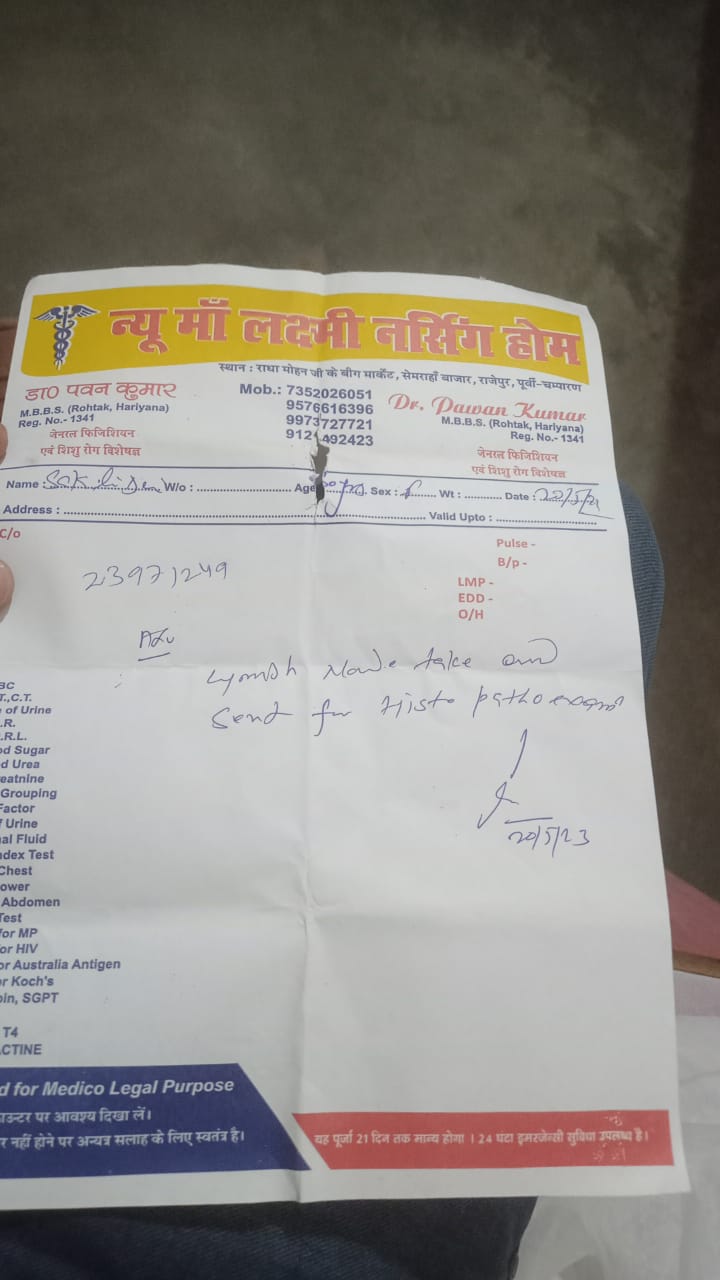 न्यू माँ लक्ष्मी नर्सिंग होम
स्थान : राधा मोहन जी के बीग मार्केट, सेमराहाँ बाजार, राजेपुर, पूर्वी-चम्पारण
डा० पवन कुमार
M.B.B.S. (Rohtak, Hariyana)
Reg. No.- 1341
जेनरल फिजिशियन
एवं शिशु रोग विशेषज्ञ
Mob.: 7352026051
9576616396
9973727721
912 492423
Dr. Pawan Kumar
M.B.B.S. (Rohtak, Hariyana)
Reg. No.- 1341
जेनरल फिजिशियन
एवं शिशु रोग विशेषज्ञ
Name : W/o : Age yrs. Sex : f Wt : Date :
Address : Valid Upto :
C/o
Pulse -
B/p -
LMP -
EDD -
O/H
23971249
Adv
Lymph Node take and
Send for Histo patho exam
20/5/23
BC
T.,C.T.
of Urine
.R.
.R.L.
od Sugar
d Urea
eatnine
Grouping
Factor
f Urine
al Fluid
ndex Test
Chest
ower
Abdomen
Test
for MP
or HIV
or Australia Antigen
or Koch's
bin, SGPT
T4
ACTINE
d for Medico Legal Purpose
काउन्टर पर आवश्य दिखा लें।
र नहीं होने पर अन्यत्र सलाह के लिए स्वतंत्र है।
यह पूर्जा 21 दिन तक मान्य होगा । 24 घंटा इमरजेन्सी सुविधा उपलब्ध है।